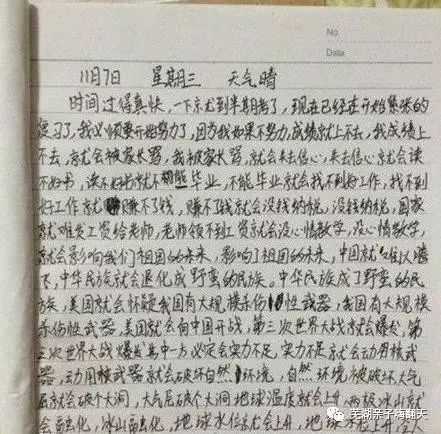 No.
Data
11月7日 星期三 天气晴
时间过得真快,一下就到半期考了,现在已经在开始紧张的
复习了,我必须要开始努力了,因为我如果不努力,成绩就上不去,我成绩上
不去,就会被家长骂,我被家长骂,就会失去信心,失去信心就会读
不好书,读不好书就不能毕业,不能毕业就会找不到好工作,找不到
好工作就赚不了钱,赚不了钱就会没钱纳税,没钱纳税,国家
就难发工资给老师,老师领不到工资就会没心情教学,没心情教学,
就会影响我们祖国的未来,影响了祖国的未来,中国就难以腾
飞,中华民族就会退化成野蛮的民族。中华民族成了野蛮的民
族,美国就会怀疑我国有大规模杀伤性武器,我国有大规模
杀伤性武器,美国就会向中国开战,第三次世界大战就会爆发,第
三次世界大战爆发其中一方必定会实力不足,实力不足就会动用核武
器,动用核武器就会破坏自然环境,自然环境被破坏,大气
层就会破个大洞,大气层破个大洞地球温度就会上升,两极冰山就
会融化,冰山融化,地球水位就会上升,地球水位上升,全人
芜湖亲子嗨翻天